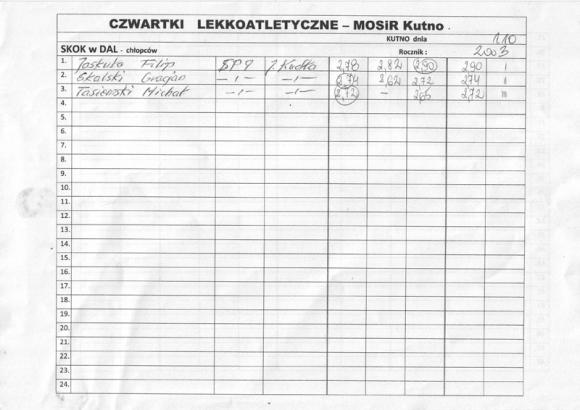 CZWARTKI LEKKOATLETYCZNE – MOSiR Kutno .
KUTNO dnia 1.10
SKOK w DAL - chłopców Rocznik : 2003
1. Jaskuła Filip SP 9 2,78 2,82 2,90 290 I
2. Skalski Gracjan —„— —„— 2,74 2,62 2,72 274 II
3. Tasiewski Michał —„— —„— 2,72 – 2,72 III
4.
5.
6.
7.
8.
9.
10.
11.
12.
13.
14.
15.
16.
17.
18.
19.
20.
21.
22.
23.
24.